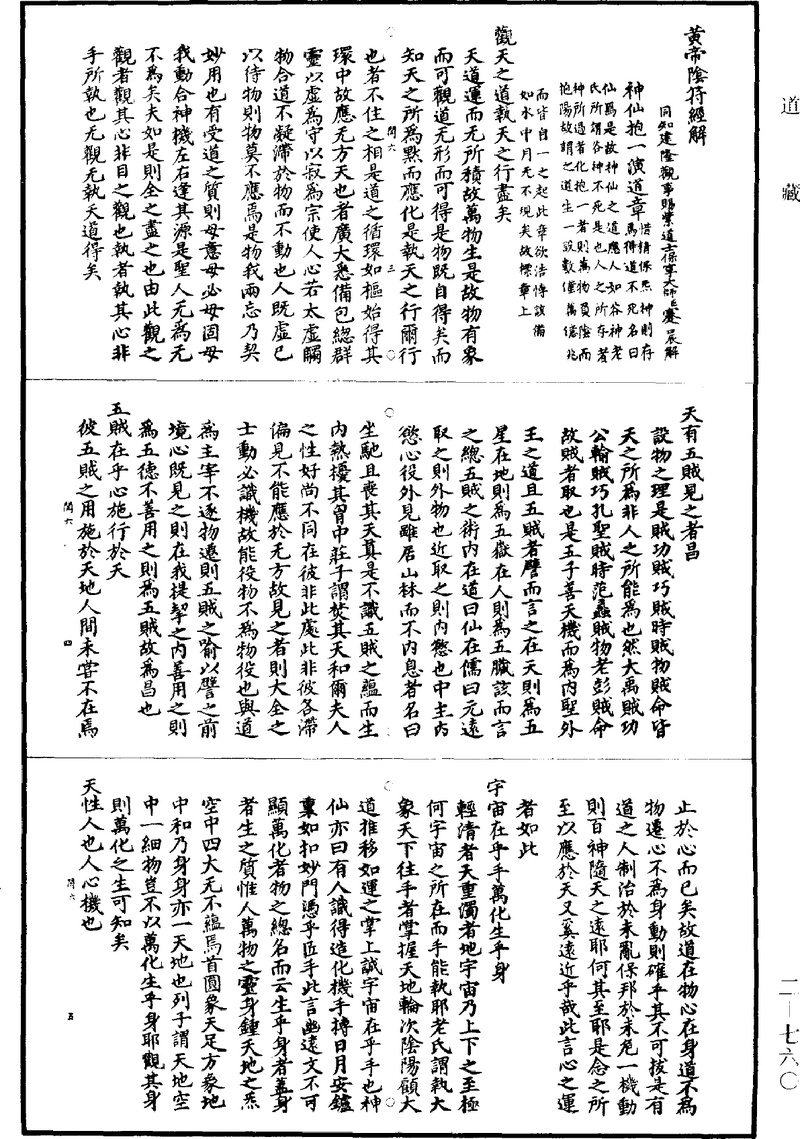 道藏
黃帝陰符經解
同知建隆觀事賜紫道士保寧大師臣蹇晨解
神仙抱一演道章
惜精保炁神則存
焉得道不死名曰
仙焉是故神仙之道應人如谷神老
氏所謂谷神不死是也人之所存者
神所過者化抱一者則萬物負陰而
抱陽故謂之道生一設數僅萬億兆
而皆自一之起此章欲法傳該備
如水中月无不現矣故標章上
觀天之道執天之行盡矣
天道運而无所積故萬物生是故物有象
而可觀道无形而可得是物既自得矣而
知天之所為黙而應化是執天之行爾行
也者不住之相是道之循環如樞始得其
環中故應无方天也者廣大悉備包緫群
靈以虛為守以寂為宗使人心若太虛囑
物合道不凝滯於物而不動也人既虛已
以待物則物莫不應焉是物我兩忘乃契
妙用也有受道之質則毋意毋必毋固毋
我動合神機左右達其源是聖人无為无
不為矣夫如是則全之盡之也由此觀之
觀者觀其心非目之觀也執者執其心非
手所執也无觀无執天道得矣
閏六
三
天有五賊見之者昌
設物之理是賊功賊巧賊時賊物賊命皆
天之所為非人之所能為也然大禹賊功
公輸賊巧孔聖賊時范蠡賊物老彭賊命
故賊者取也是五子善天機而為内聖外
王之道且五賊者譬而言之在天則為五
星在地則為五嶽在人則為五臟該而言
之緫五賊之術内在道曰仙在儒曰元遠
取之則外物也近取之則内慾也中主内
慾心役外見雖居山林而不内息者名曰
坐馳且喪其天真是不識五賊之蘊而生
内熱擾其胷中莊子謂焚其天和爾夫人
之性好尚不同在彼非此處此非彼各滯
偏見不能應於无方故見之者則大全之
士動必識機故能役物不為物役也與道
為主宰不逐物遷則五賊之喻以譬之前
境心既見之則在我提挈之内善用之則
為五德不善用之則為五賊故為昌也
五賊在乎心施行於天
彼五賊之用施於天地人間未甞不在焉
閏六
四
止於心而已矣故道在物心在身道不為
物遷心不為身動則確乎其不可拔是有
道之人制治於未亂保邦於未危一機動
則百神隨天之遠耶何其至耶是念之所
至以應於天又奚遠近乎哉此言心之運
者如此
宇宙在乎手萬化生乎身
輕清者天重濁者地宇宙乃上下之至極
何宇宙之所在而手能執耶老氏謂執大
象天下往手者掌握天地輪次陰陽顧大
道推移如運之掌上誠宇宙在乎手也神
仙亦曰有人識得造化機手摶日月安鑪
裏如扣妙門憑乎匠手此言幽遠文不可
顯萬化者物之緫名而云生乎身者蓋身
者生之質惟人萬物之靈身鍾天地之炁
空中四大无不蘊焉首圓象天足方象地
中和乃身身亦一天地也列子謂天地空
中一細物豈不以萬化生乎身耶觀其身
則萬化之生可知矣
天性人也人心機也
閏六
五
二—七六〇